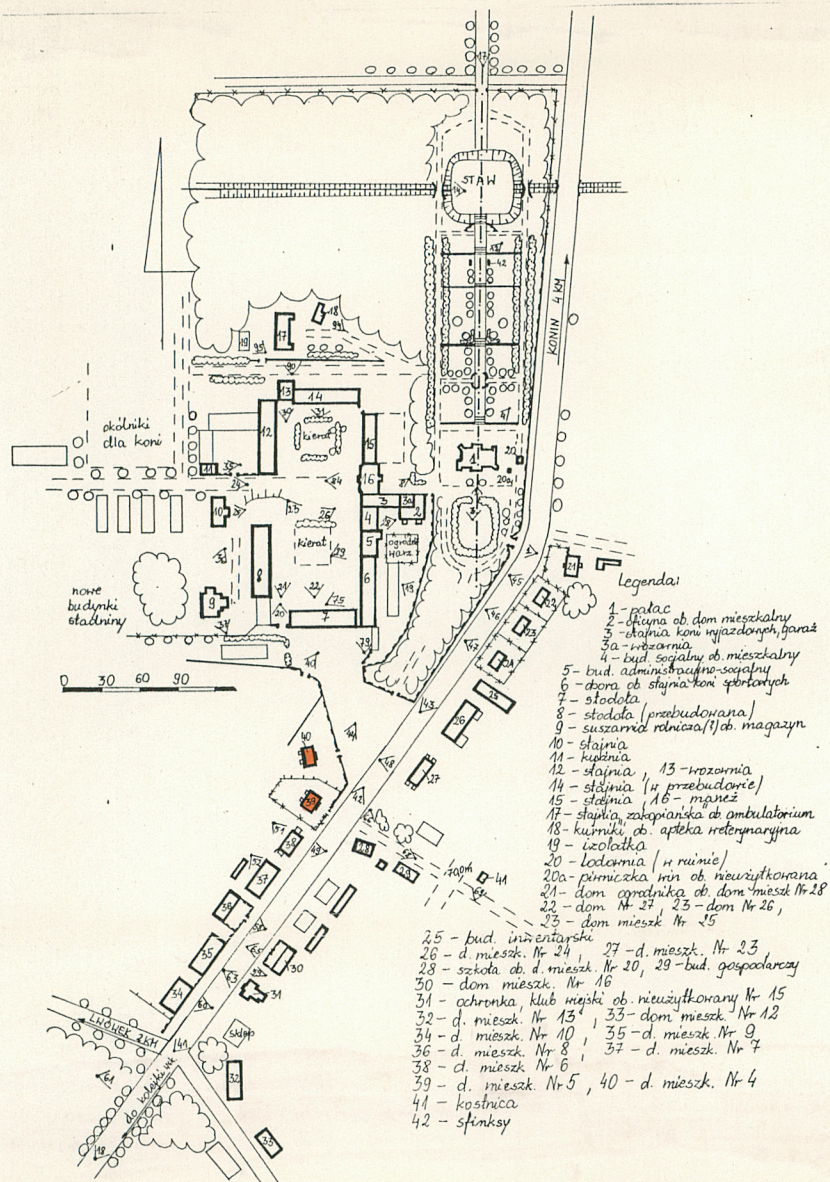 STAW
KONIN 4 KM
okólniki
dla koni
kierat
kierat
ogród
warz.
nowe
budynki
stadniny
0 30 60 90
LWÓWEK 2KM
do kolejki wk
sklep
Legenda:
1 - pałac
2 - oficyna ob. dom mieszkalny
3 - stajnia koni wyjazdowych, garaż
3a - wozownia
4 - bud. socjalny ob. mieszkalny
5 - bud. administracyjno-socjalny
6 - obora ob. stajnia koni sportowych
7 - stodoła
8 - stodoła (przebudowana)
9 - suszarnia rolnicza(?) ob. magazyn
10 - stajnia
11 - kuźnia
12 - stajnia, 13 - wozownia
14 - stajnia (w przebudowie)
15 - stajnia, 16 - maneż
17 - stajnia "zakopiańska" ob. ambulatorium
18 - kurniki ob. apteka weterynaryjna
19 - izolatka
20 - lodownia (w ruinie)
20a - piwniczka win ob. nieużytkowana
21 - dom ogrodnika ob. dom mieszk Nr 28
22 - dom Nr 27, 23 - dom Nr 26,
23 - dom mieszk Nr 25
25 - bud. inwentarski
26 - d. mieszk. Nr 24, 27 - d. mieszk. Nr 23,
28 - szkoła ob. d. mieszk. Nr 20, 29 - bud. gospodarczy
30 - dom mieszk. Nr 16
31 - ochronka, klub wiejski ob. nieużytkowany Nr 15
32 - d. mieszk. Nr 13, 33 - dom mieszk. Nr 12
34 - d. mieszk. Nr 10, 35 - d. mieszk. Nr 9
36 - d. mieszk. Nr 8, 37 - d. mieszk. Nr 7
38 - d. mieszk. Nr 6
39 - d. mieszk. Nr 5, 40 - d. mieszk. Nr 4
41 - kostnica
42 - sfinksy